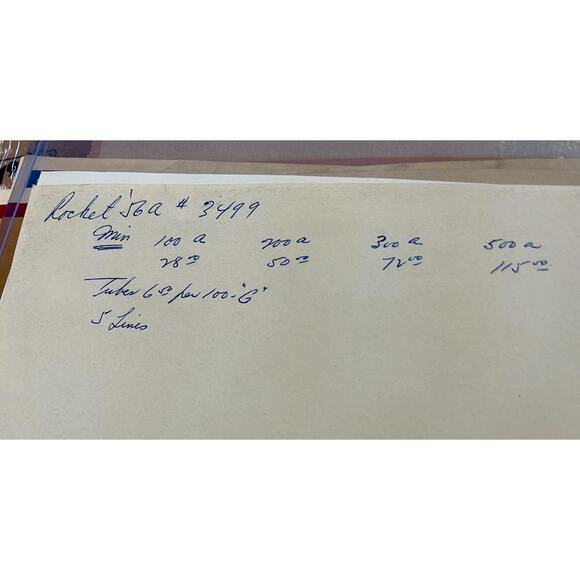 Rocket '56A # 3499
Min 100 a 200 a 300 a 500 a
28 00 50 00 72 00 115 00
Tubes 6 50 per 100 - "G"
5 Lines